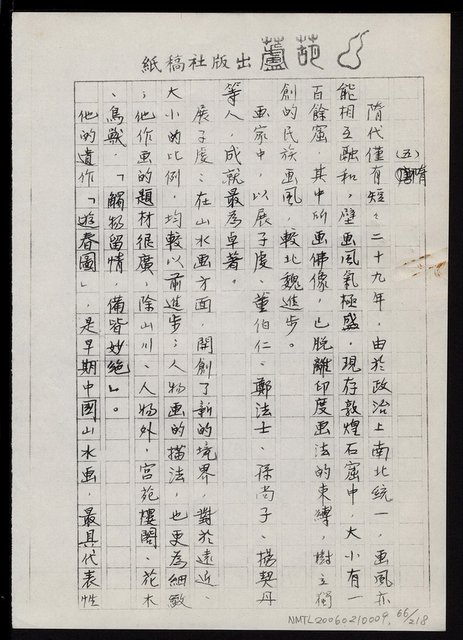 葫蘆出版社稿紙
(五)隋
隋代僅有短々二十九年，由於政治上南北統一，畫風亦
能相互融和，壁畫風氣極盛，現存敦煌石窟中，大小有一
百餘窟，其中所画佛像，已脫離印度画法的束縛，樹立獨
創的民族画風，較北魏進步。
画家中，以展子虔、董伯仁、鄭法士、孫尚子、楊契丹
等人，成就最為卓著。
展子虔：在山水画方面，開創了新的境界，對於遠近、
大小的比例，均較以前進步；人物画的描法，也更為細緻
；他作画的題材很廣，除山川、人物外，宮苑樓閣、花木
、鳥獸，「觸物留情，備皆妙絕」。
他的遺作「遊春圖」，是早期中國山水画，最具代表性
NMTL20060210009, 66/218